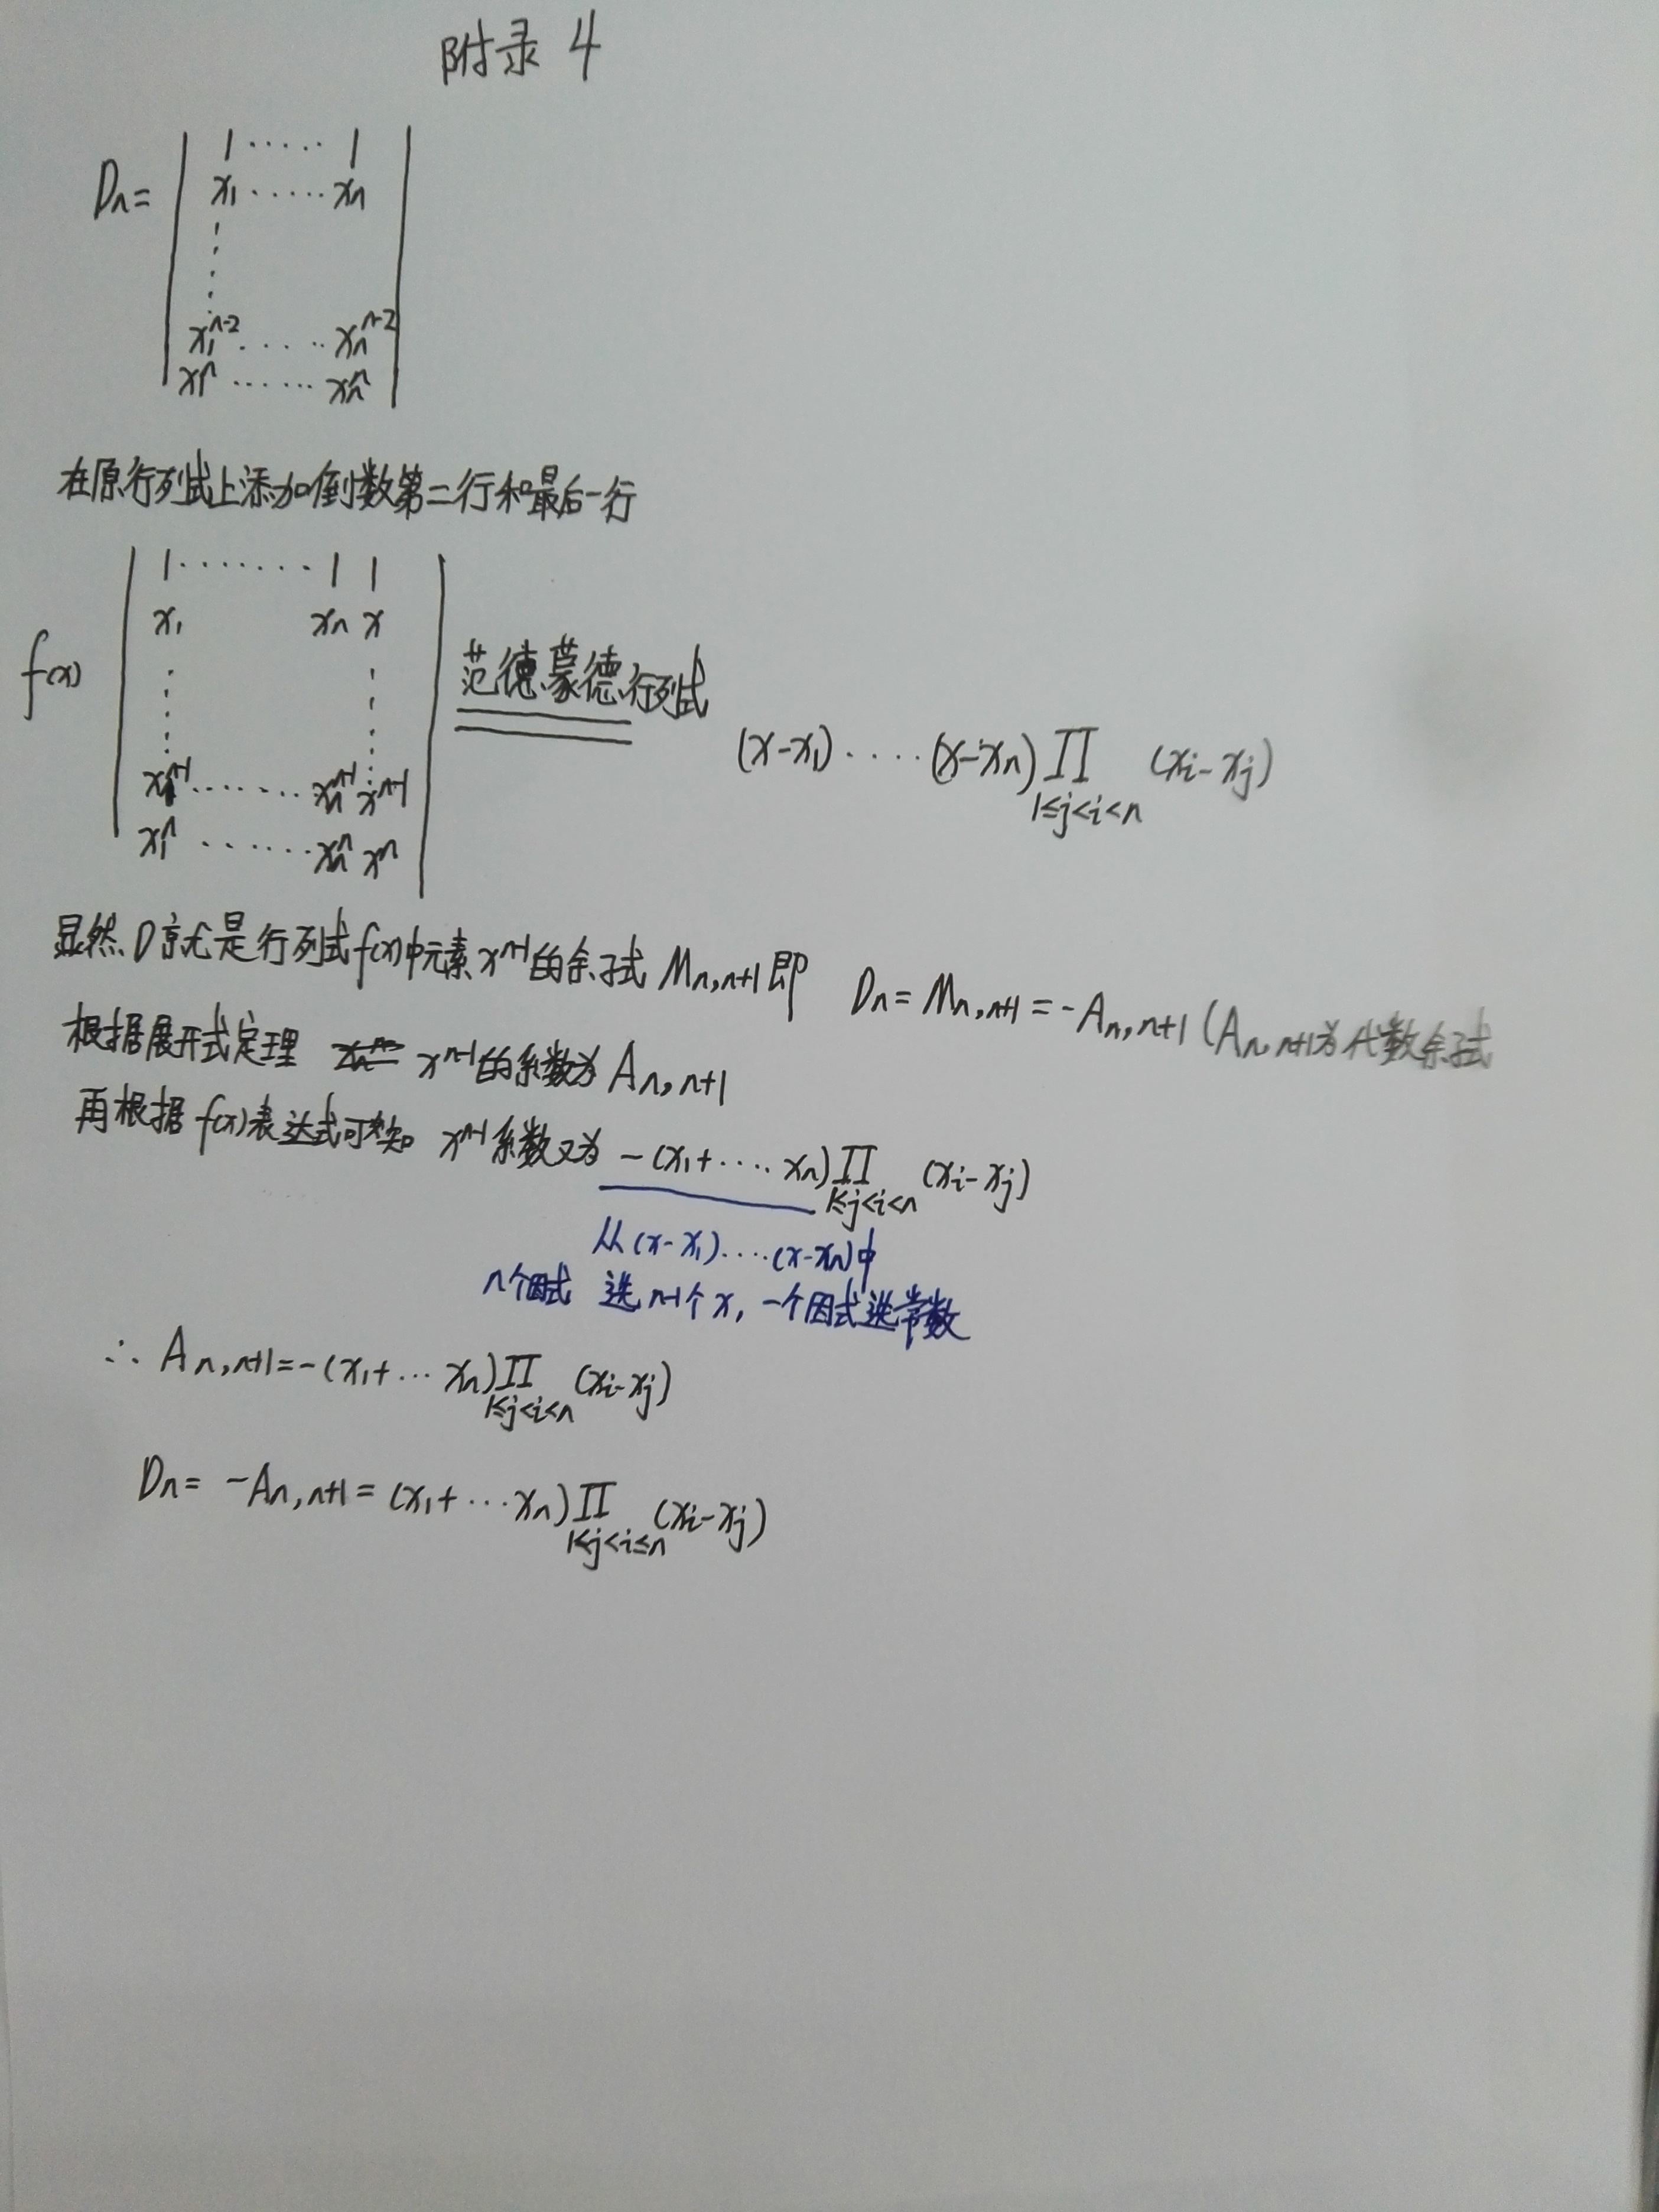 附录 4
Dn= | 1 ..... 1 |
x₁ ..... xn
x₁ⁿ⁻² ..... xnⁿ⁻²
x₁ⁿ ...... xnⁿ
在原行列式上添加倒数第二行和最后一行
f(x) | 1 ....... 1 1 |
x₁ xn x
x₁ⁿ⁻¹ ....... xnⁿ⁻¹ xⁿ⁻¹
x₁ⁿ ...... xnⁿ xⁿ
范德蒙德行列式
(x-x₁)....(x-xn)∏ (xi-xj)
1≤j<i<n
显然D就是行列式f(x)中元素xⁿ⁻¹的余子式Mn,n+1即 Dn=Mn,n+1=-An,n+1(An,n+1为代数余子式
根据展开式定理 xⁿ⁻¹的系数为An,n+1
再根据f(x)表达式可知 xⁿ⁻¹系数又为-(x₁+....xn)∏ (xi-xj)
1≤j<i<n
从(x-x₁)....(x-xn)中
n个因式 选n-1个x,一个因式选常数
∴ An,n+1=-(x₁+...xn)∏ (xi-xj)
1≤j<i<n
Dn= -An,n+1=(x₁+...xn)∏ (xi-xj)
1≤j<i≤n